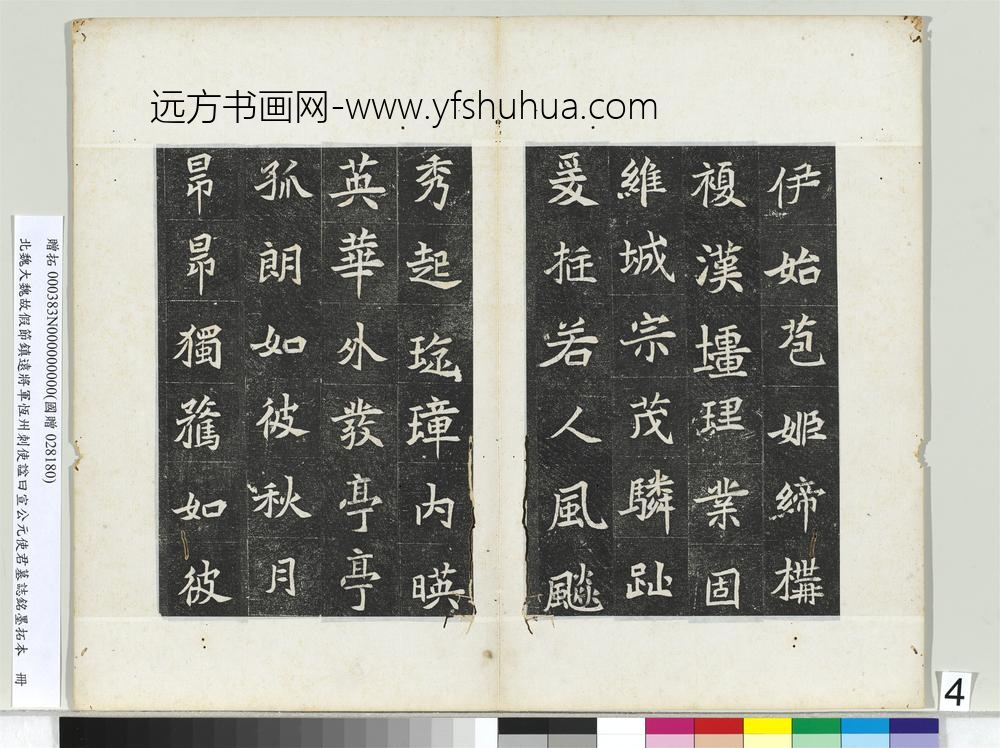 远方书画网-www.yfshuhua.com
伊始苞姬締構
複漢壃理業固
維城宗茂驎趾
爰挺若人風飈
秀起琁璋內暎
英華外發亭亭
孤朗如彼秋月
昴昴獨鶩如彼
贈拓 000383N000000000(國贈 028180)
北魏大魏故假節鎮遠將軍恆州刺使諡曰宣公元使君墓誌銘墨拓本 冊
4